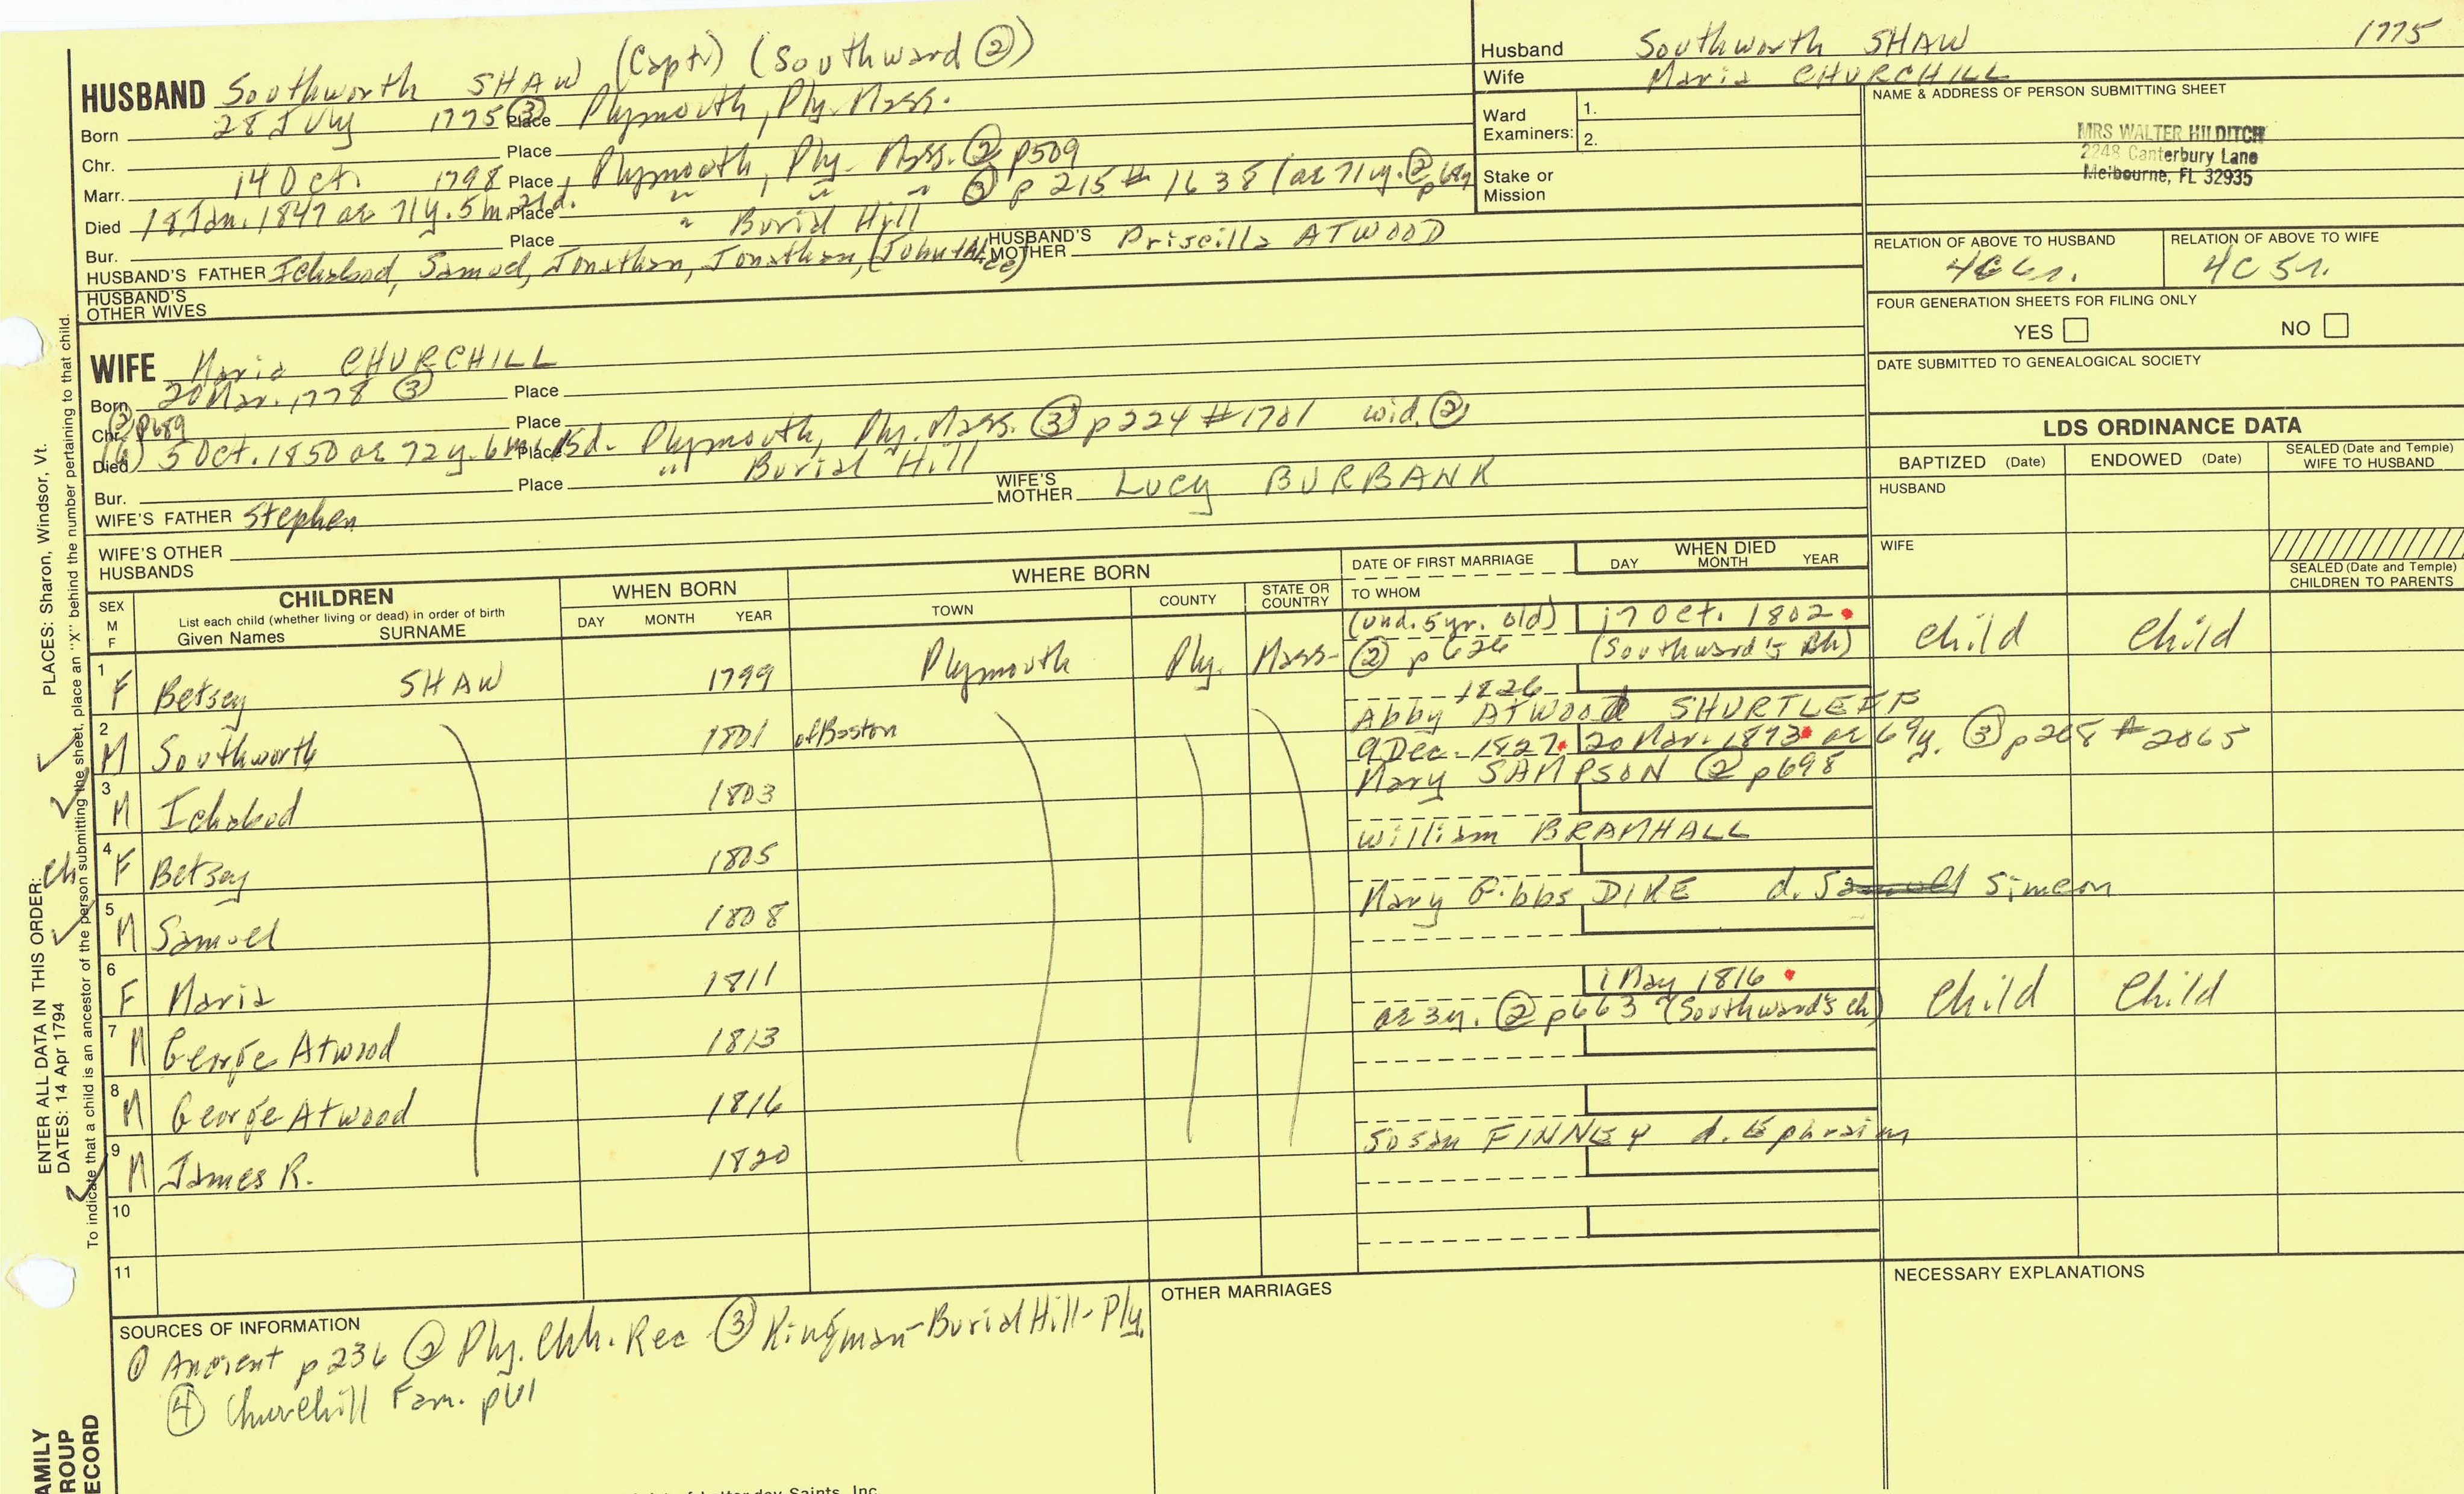 Husband Southworth SHAW 1775
Wife Maria CHURCHILL
Ward Examiners: 1.
2.
Stake or Mission
NAME & ADDRESS OF PERSON SUBMITTING SHEET
MRS WALTER HILDITCH
2248 Canterbury Lane
Melbourne, FL 32935
RELATION OF ABOVE TO HUSBAND RELATION OF ABOVE TO WIFE
4C6r. 4C5r.
FOUR GENERATION SHEETS FOR FILING ONLY
YES NO
DATE SUBMITTED TO GENEALOGICAL SOCIETY
LDS ORDINANCE DATA
BAPTIZED (Date) ENDOWED (Date) SEALED (Date and Temple) WIFE TO HUSBAND
HUSBAND
WIFE
SEALED (Date and Temple) CHILDREN TO PARENTS
HUSBAND Southworth SHAW (Capt.) (Southward ②)
Born 28 July 1775 ③ Place Plymouth, Ply. Mass.
Chr. Place
Marr. 14 Oct. 1798 Place Plymouth, Ply. Mass. ② p509
Died 18 Jan. 1847 ae 71y. 5m. 21d. Place " " " ③ p 215 # 1638 (ae 71y. ② p689
Bur. Place " Burial Hill
HUSBAND'S FATHER Ichabod, Samuel, Jonathan, Jonathan, HUSBAND'S MOTHER Priscilla ATWOOD
HUSBAND'S OTHER WIVES
WIFE Maria CHURCHILL
Born 20 Mar. 1778 ③ Place
Chr. ② p689 Place
Died (6) 5 Oct. 1850 ae 72y. 6m. 15d. Place Plymouth, Ply. Mass. ③ p224 #1701 wid. ②
Bur. Place " Burial Hill
WIFE'S FATHER Stephen WIFE'S MOTHER Lucy BURBANK
WIFE'S OTHER HUSBANDS
SEX M F CHILDREN List each child (whether living or dead) in order of birth Given Names SURNAME WHEN BORN DAY MONTH YEAR WHERE BORN TOWN COUNTY STATE OR COUNTRY DATE OF FIRST MARRIAGE TO WHOM WHEN DIED DAY MONTH YEAR
(und. 5yr. old) 17 Oct. 1802
1 F Betsey SHAW 1799 Plymouth Ply. Mass. ② p626 (Southward's Ch) Child Child
1826
2 M Southworth 1801 of Boston Abby Atwood SHURTLEFF
9 Dec. 1827 20 Mar. 1873 ae 69y. ③ p268 #2065
3 M Ichabod 1803 Mary SAMPSON ② p698
4 F Betsey 1805 William BRAMHALL
5 M Samuel 1808 Mary Gibbs DIKE d. Simeon
6 F Maria 1811
1 May 1816
7 M George Atwood 1813 ae 3y. ② p663 (Southward's ch) Child Child
8 M George Atwood 1816
9 M James R. 1820 Susan FINNEY d. Ephraim
10
11
SOURCES OF INFORMATION
① Ancient p236 ② Ply. Chh. Rec ③ Kingman-Burial Hill-Ply.
④ Churchill Fam.
OTHER MARRIAGES
NECESSARY EXPLANATIONS
ENTER ALL DATA IN THIS ORDER: PLACES: Sharon, Windsor, Vt.
DATES: 14 Apr 1794
To indicate that a child is an ancestor of the person submitting the sheet, place an "X" behind the number pertaining to that child.
ch
AMILY
ROUP
ECORD
Saints, Inc